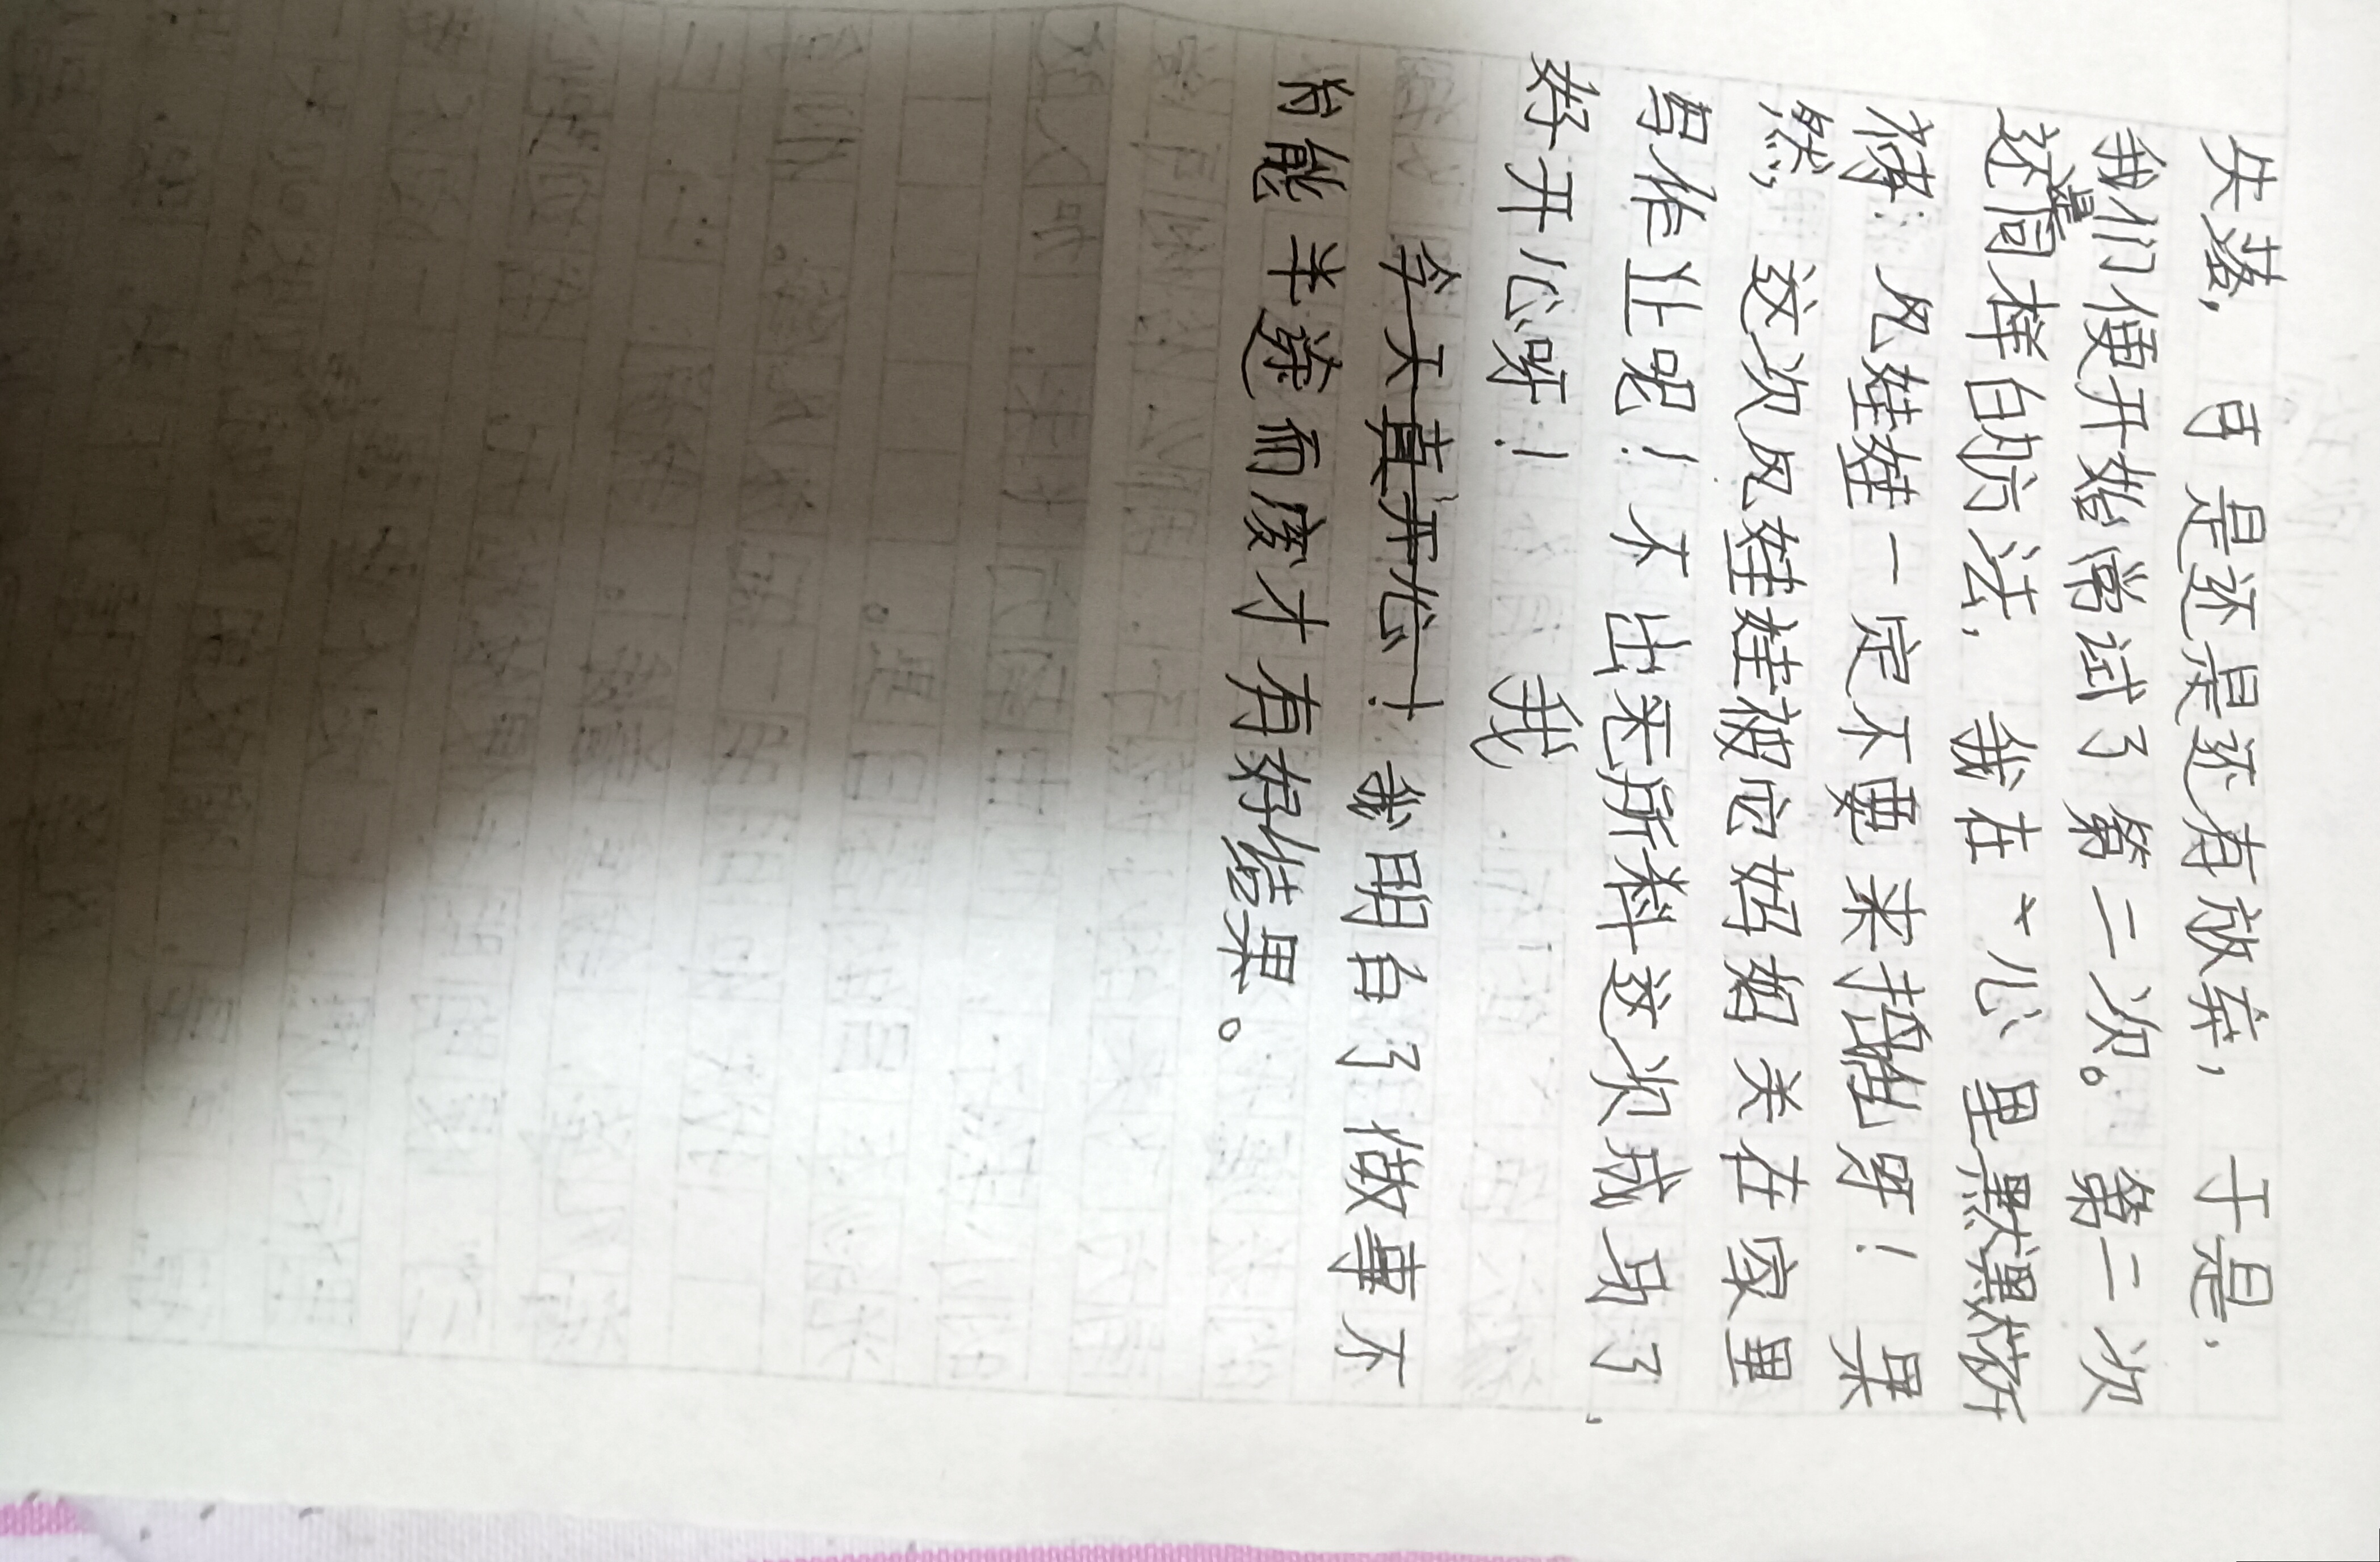 失落，可是还是还有放弃，于是，
我们便开始常试了第二次。第二次
还是同样的方法，我在“心里默默祈
祷：风娃娃一定不要来捣乱呀！果
然，这次风娃娃被它妈妈关在家里
写作业呢！不出乎所料这次成功了，
好开心呀！我
今天真开心！我明白了做事不
能半途而废才有好结果。